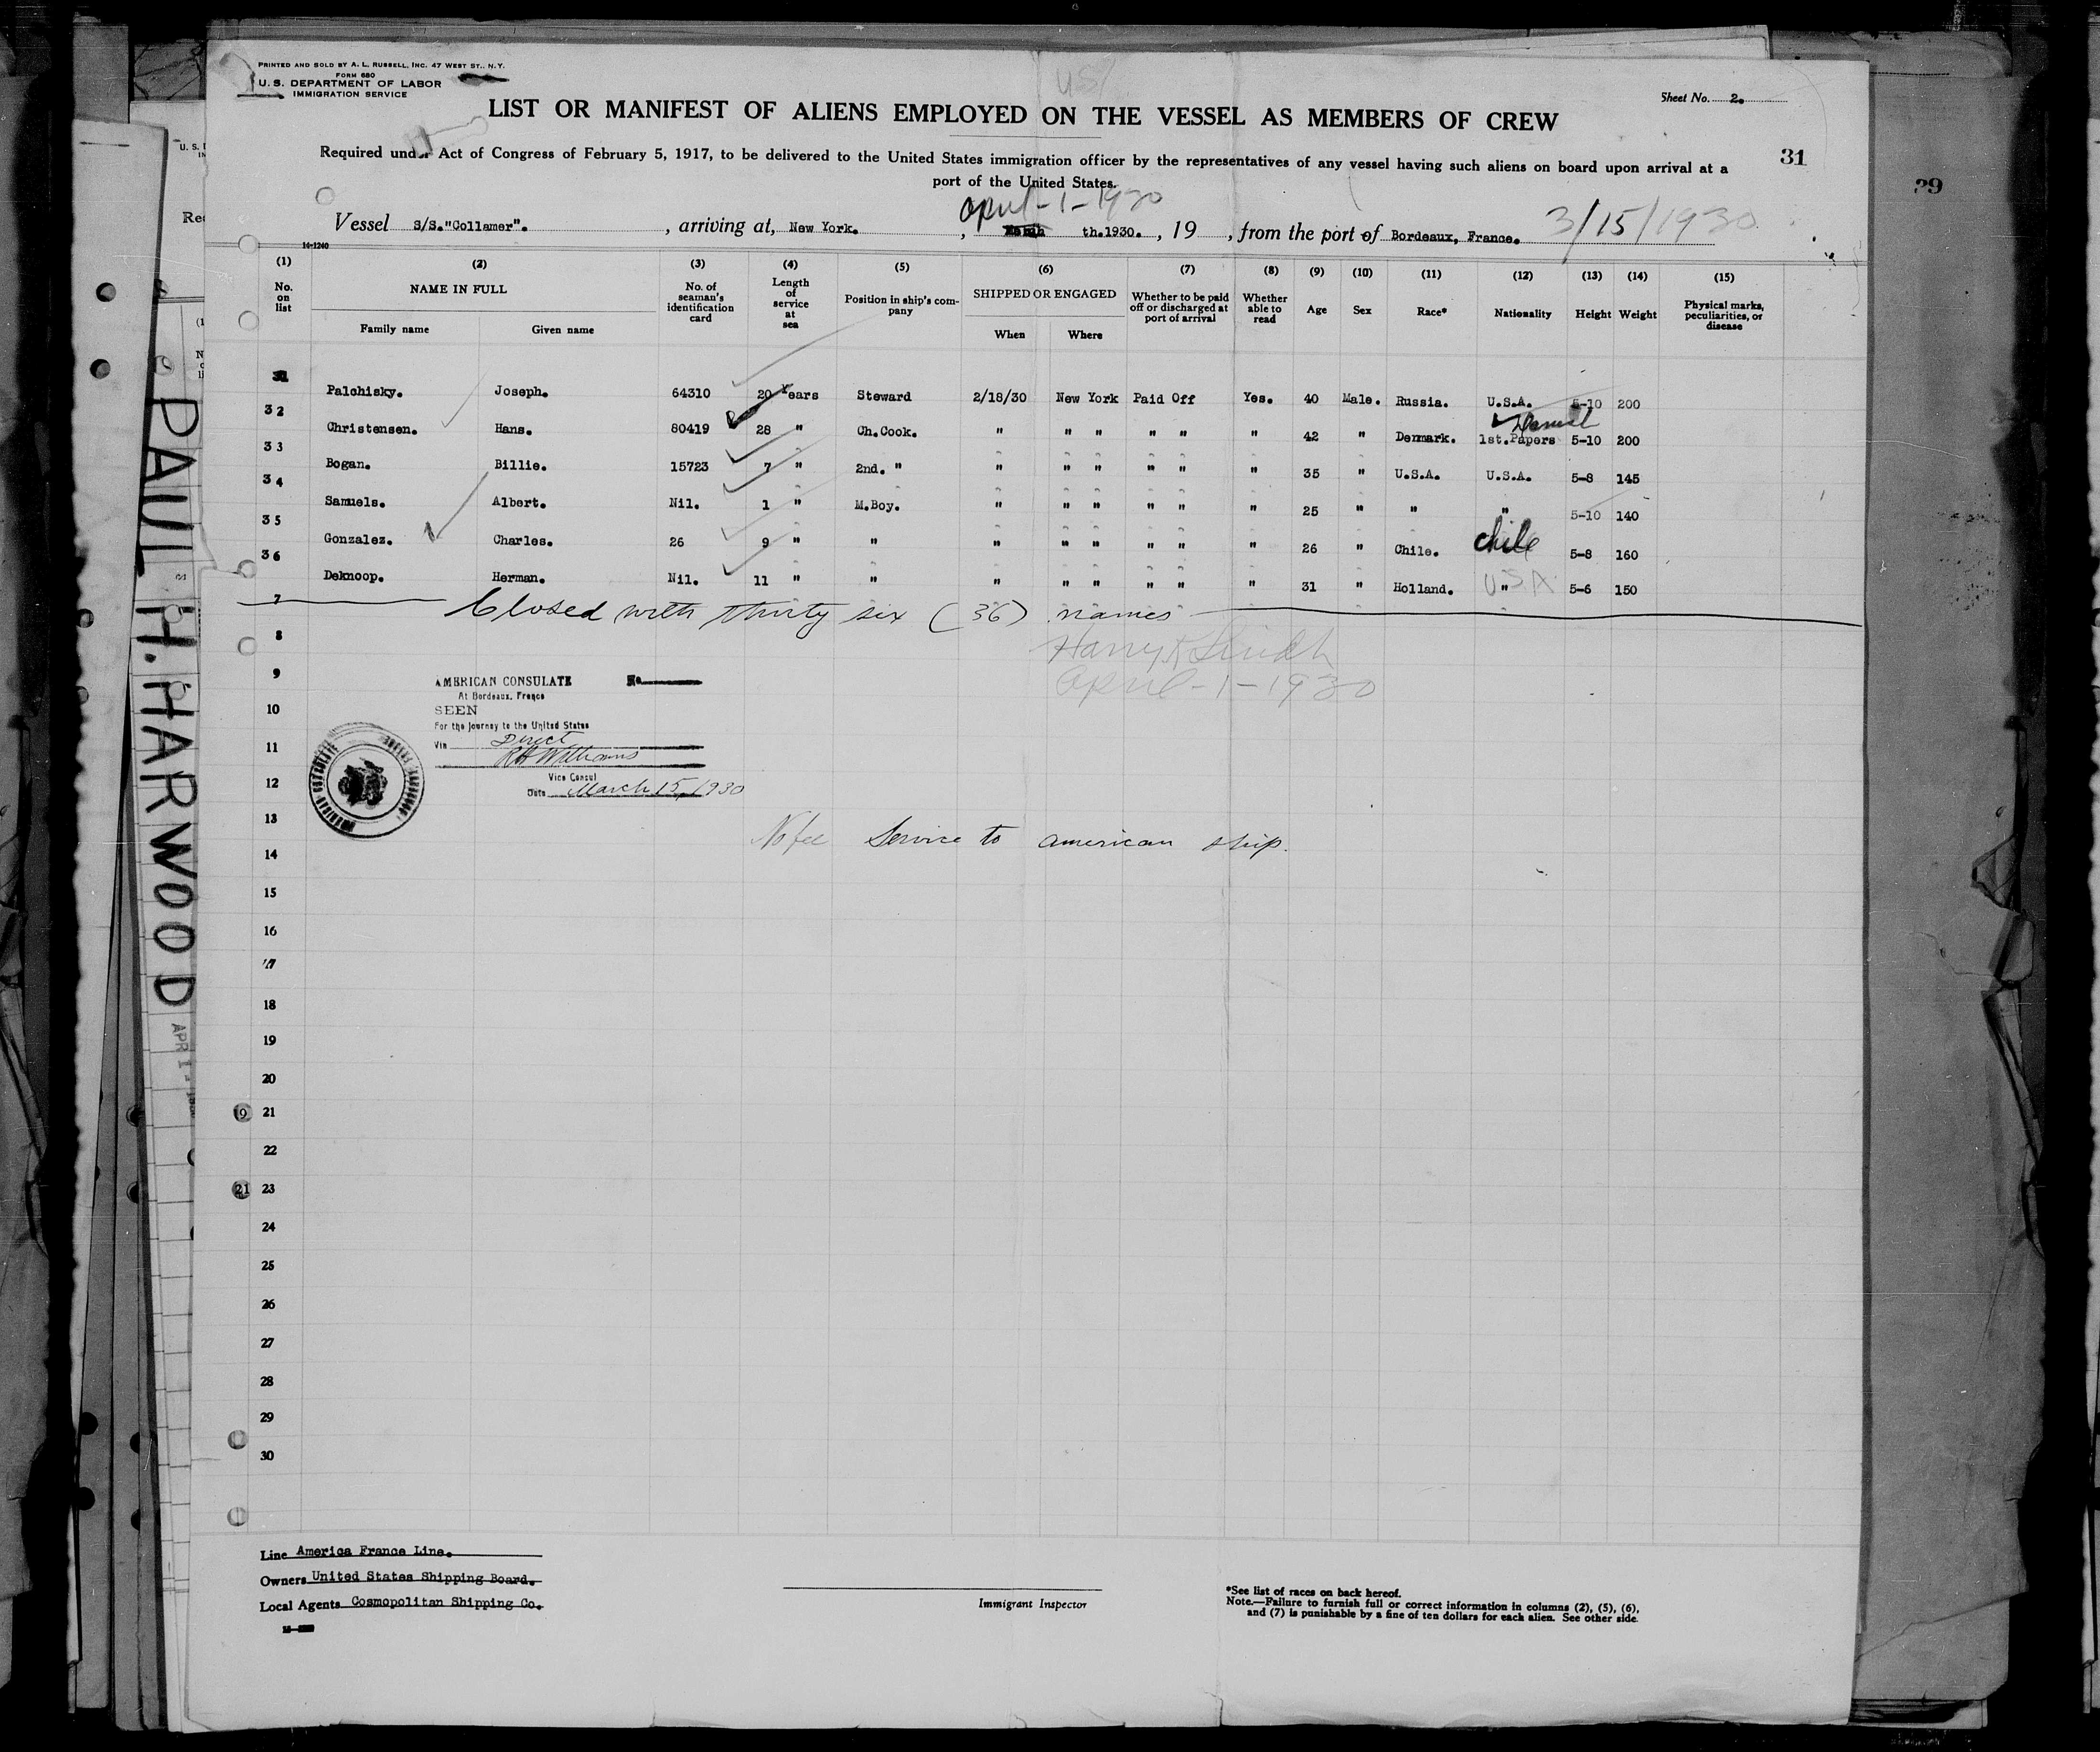 PRINTED AND SOLD BY A. L. RUSSELL, INC. 47 WEST ST., N.Y.
FORM 680
U. S. DEPARTMENT OF LABOR
IMMIGRATION SERVICE
Sheet No. 2.
LIST OR MANIFEST OF ALIENS EMPLOYED ON THE VESSEL AS MEMBERS OF CREW
31
Required under Act of Congress of February 5, 1917, to be delivered to the United States immigration officer by the representatives of any vessel having such aliens on board upon arrival at a
port of the United States.
April-1-1930
Vessel S/S."Collamer". , arriving at, New York. , th.1930. , 19 , from the port of Bordeaux, France. 3/15/1930
14-1240
(1) (2) (3) (4) (5) (6) (7) (8) (9) (10) (11) (12) (13) (14) (15)
No. on list NAME IN FULL Family name Given name No. of seaman's identification card Length of service at sea Position in ship's company SHIPPED OR ENGAGED When Where Whether to be paid off or discharged at port of arrival Whether able to read Age Sex Race* Nationality Height Weight Physical marks, peculiarities, or disease
31 Palchisky. Joseph. 64310 20 Years Steward 2/18/30 New York Paid Off Yes. 40 Male. Russia. U.S.A. 5-10 200
32 Christensen. Hans. 80419 28 " Ch.Cook. " " " " " " 42 " Denmark. 1st.Papers 5-10 200
33 Bogan. Billie. 15723 7 " 2nd. " " " " " " " 35 " U.S.A. U.S.A. 5-8 145
34 Samuels. Albert. Nil. 1 " M.Boy. " " " " " " 25 " " " 5-10 140
35 Gonzalez. Charles. 26 9 " " " " " " " " 26 " Chile. Chile 5-8 160
36 Deknoop. Herman. Nil. 11 " " " " " " " " 31 " Holland. " USA 5-6 150
7 Closed with thirty six (36) names
8
April-1-1930
9
AMERICAN CONSULATE No.
At Bordeaux, France
10
SEEN
For the journey to the United States
11
Via Direct
R H Williams
Vice Consul
12
Date March 15, 1930
13
No fee Service to american ship.
14
15
16
17
18
19
20
21
22
23
24
25
26
27
28
29
30
Line America France Line.
Owners United States Shipping Board.
Local Agents Cosmopolitan Shipping Co.
Immigrant Inspector
*See list of races on back hereof.
Note.—Failure to furnish full or correct information in columns (2), (5), (6),
and (7) is punishable by a fine of ten dollars for each alien. See other side.
PAUL H. HARWOOD
APR 1